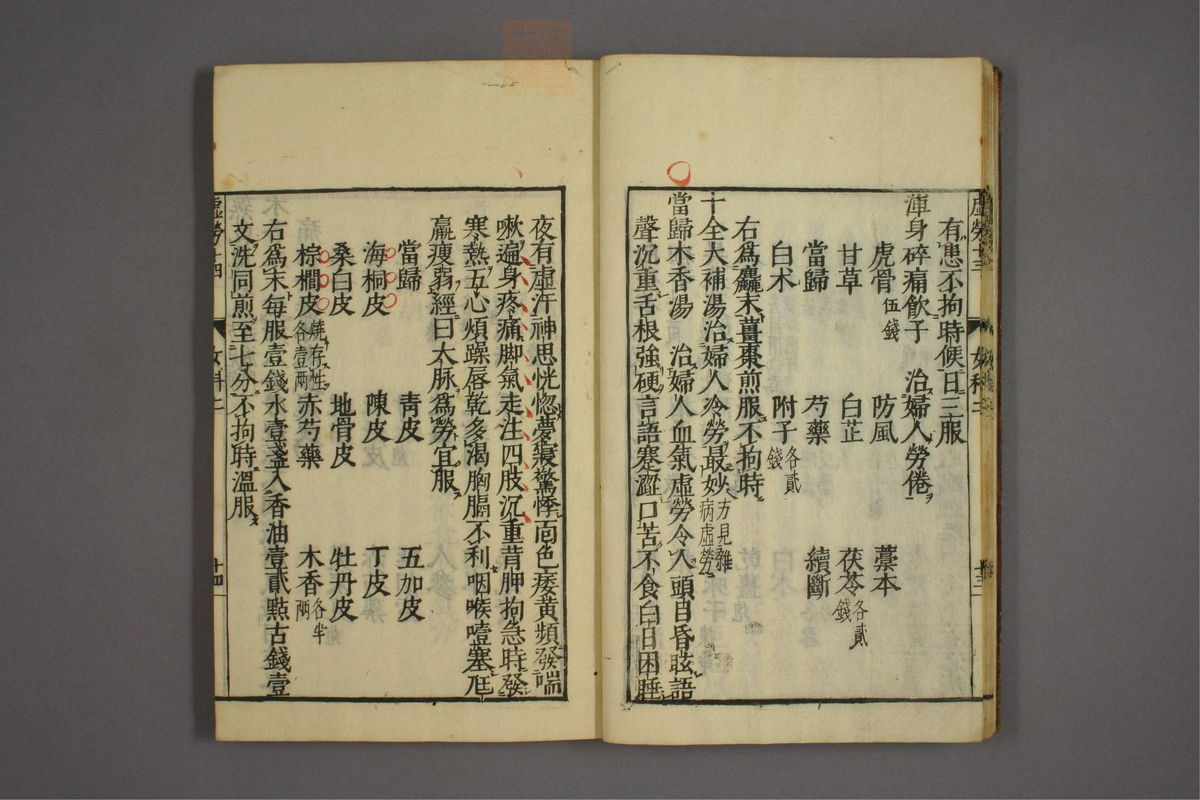 虚勞十三
女科二
十三
有患不拘時候日三服
渾身碎痛飲子 治婦人勞倦
虎骨伍錢 防風 藁本
甘草 白芷 茯苓各貳錢
當歸 芍藥 續斷
白朮 附子各貳錢
右爲麤末薑棗煎服不拘時
十全大補湯治婦人冷勞最妙方見雜病虛勞
當歸木香湯 治婦人血氣虛勞令人頭目昏眩語
聲沉重舌根強硬言語蹇澀口苦不食白日困睡
夜有虛汗神思恍惚夢寢驚悸面色痿黃頻發喘
嗽遍身疼痛脚氣走注四肢沉重背胛拘急時發
寒熱五心煩躁唇乾多渴胸膈不利咽喉噎塞尫
羸瘦弱經曰大脉爲勞宜服
當歸 青皮 五加皮
海桐皮 陳皮 丁皮
桑白皮 地骨皮 牡丹皮
棕櫚皮燒存性各壹兩 赤芍藥 木香各半兩
右爲末每服壹錢水壹盞入香油壹貳點古錢壹
文洗同煎至七分不拘時溫服
虚勞十四
女科二
十四